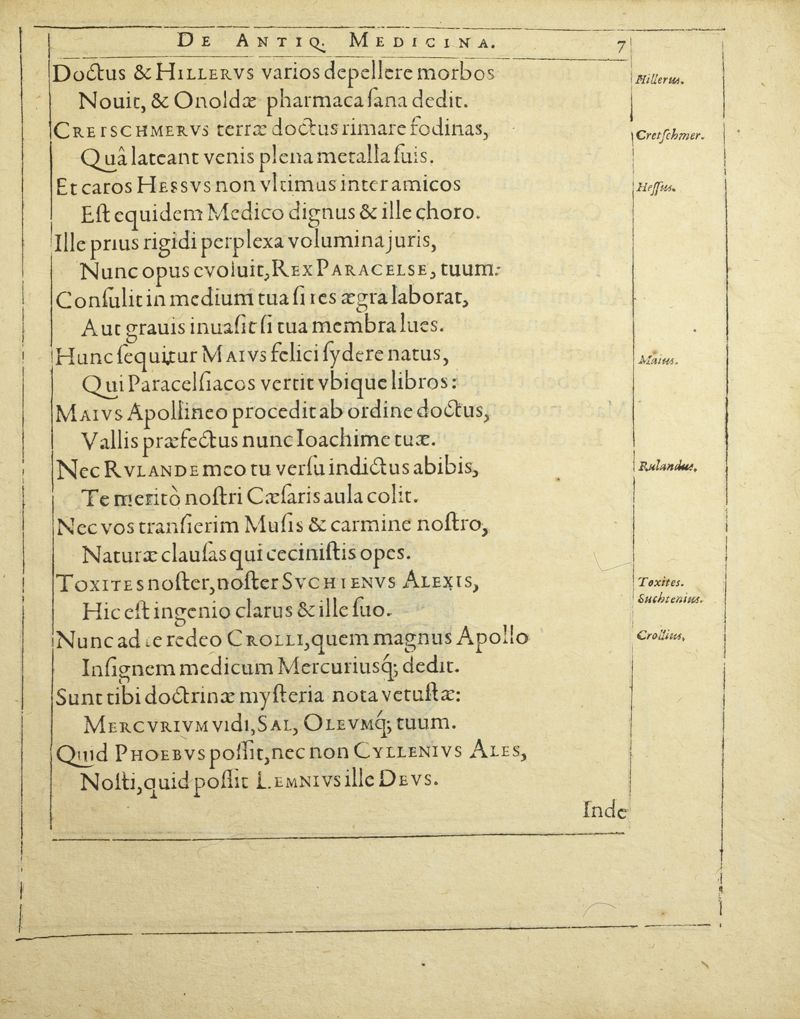 DE ANTIQ. MEDICINA. 7
Doctus & HILLERVS varios depellere morbos
Hillerus.
Nouit, & Onoldæ pharmaca sana dedit.
CRETSCHMERVS terræ doctus rimare fodinas,
Cretschmer.
Quâ lateant venis plena metalla suis.
Et caros HESSVS non vltimus inter amicos
Hessus.
Est equidem Medico dignus & ille choro.
Ille prius rigidi perplexa volumina juris,
Nunc opus evoluit, REX PARACELSE, tuum:
Consulit in medium tua si res ægra laborat,
Aut grauis inuasit si tua membra lues.
Hunc sequitur MAIVS felici sydere natus,
Maius.
Qui Paracelsiacos vertit vbique libros:
MAIVS Apollineo procedit ab ordine doctus,
Vallis præfectus nunc Ioachime tuæ.
Nec RVLANDE meo tu versu indictus abibis,
Rulandus.
Te meritò nostri Cæsaris aula colit.
Nec vos transierim Musis & carmine nostro,
Naturæ clausas qui cecinistis opes.
TOXITES noster, noster SVCHTENVS ALEXIS,
Toxites.
Suchtenius.
Hic est ingenio clarus & ille suo.
Nunc ad te redeo CROLLI, quem magnus Apollo
Crollius,
Insignem medicum Mercuriusq; dedit.
Sunt tibi doctrinæ mysteria nota vetustæ:
MERCVRIVM vidi, SAL, OLEVMq́; tuum.
Quid PHOEBVS possit, nec non CYLLENIVS ALES,
Nosti, quid possit LEMNIVS ille DEVS.
Inde